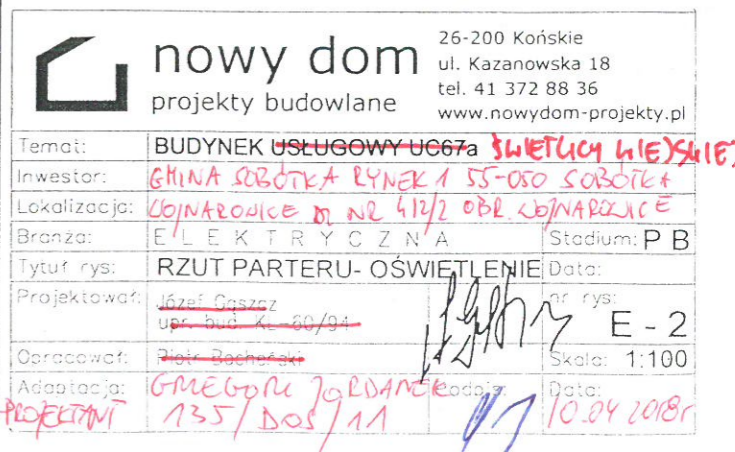 nowy dom
projekty budowlane
26-200 Końskie
ul. Kazanowska 18
tel. 41 372 88 36
www.nowydom-projekty.pl
Temat: BUDYNEK USŁUGOWY UC67a ŚWIETLICY WIEJSKIEJ
Inwestor: GMINA SOBÓTKA RYNEK 1 55-050 SOBÓTKA
Lokalizacja: WOJNAROWICE DZ NR 412/2 OBR. WOJNAROWICE
Branża: ELEKTRYCZNA Stadium: PB
Tytuł rys: RZUT PARTERU- OŚWIETLENIE Data:
Projektował: Józef Gąszcz nr rys:
upr. bud. KL-60/94 E-2
Opracował: Piotr Bocheński Skala: 1:100
Adaptacja: GRZEGORZ JORDANEK podpis: Data:
PROJEKTANT 135/DOŚ/11 10.04 2018r